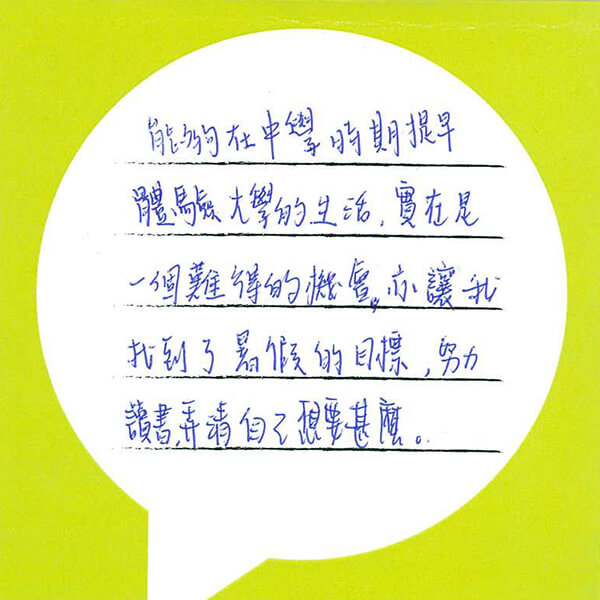 能夠在中學時期提早
體驗大學的生活，實在是
一個難得的機會，亦讓我
找到了暑假的目標，努力
讀書，弄清自己想要甚麼。